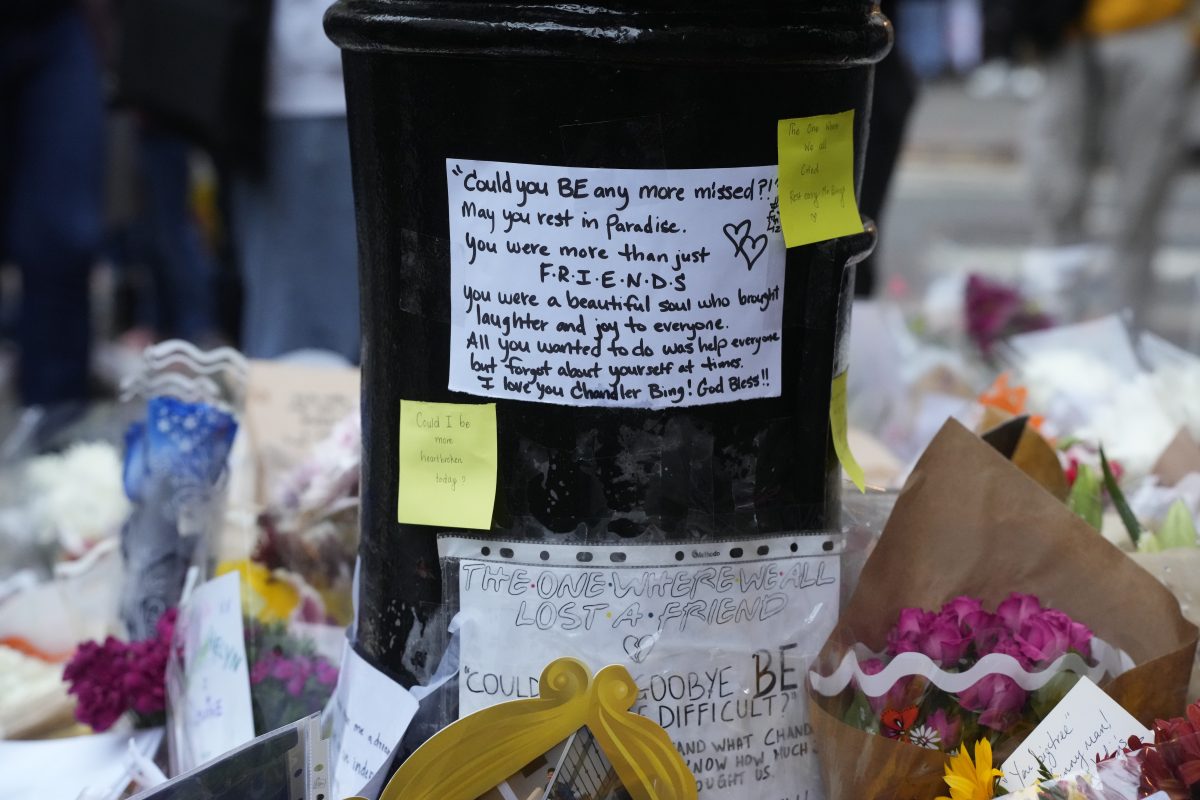 "Could you BE any more missed?!"
May you rest in Paradise.
You were more than just
F·R·I·E·N·D·S
you were a beautiful soul who brought
laughter and joy to everyone.
All you wanted to do was help everyone
but forget about yourself at times.
I love you Chandler Bing! God Bless!!
The One Where
We all
Cried
Rest easy Mr Bing
Could I be
more
heartbroken
today?
THE·ONE·WHERE·WE·ALL
LOST·A·FRIEND
"COULD
GOODBYE BE
DIFFICULT?"
AND WHAT CHAND
KNOW HOW MUCH
OUGHT US.